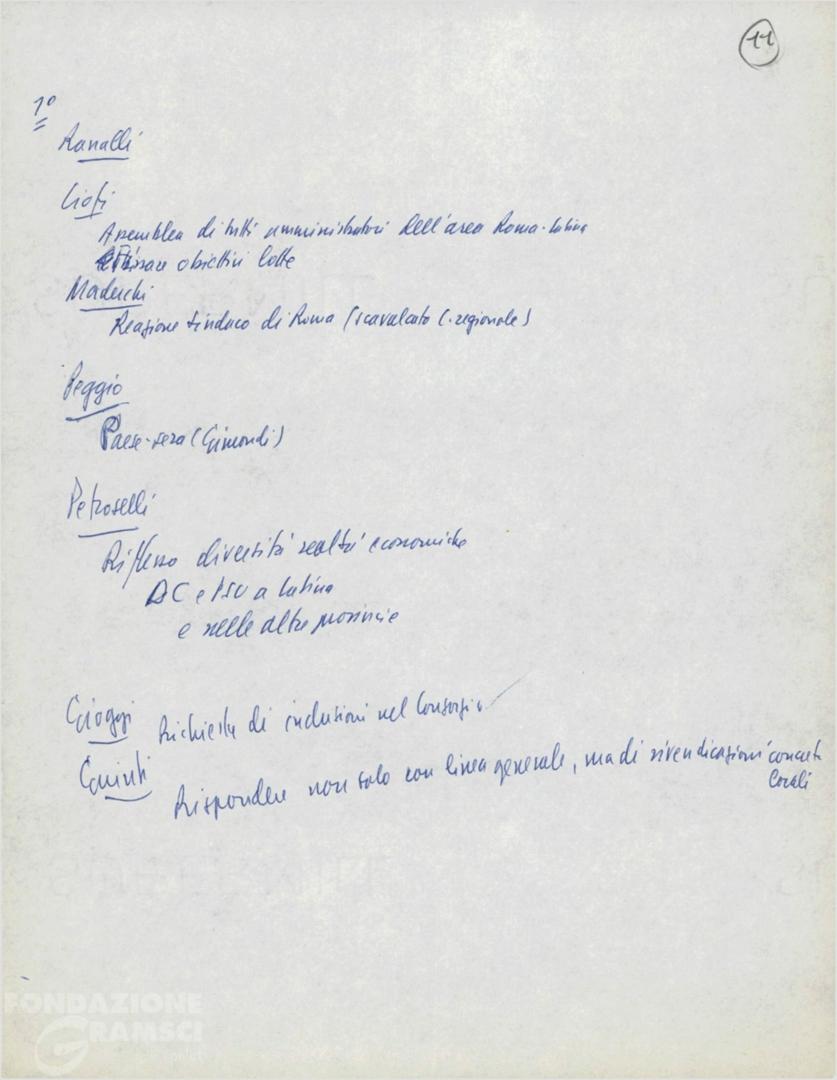 11
1º
Ranalli
Ciofi
Assemblea di tutti amministratori dell'area Roma-Latina
fissare obiettivi lotte
Maderchi
Reazione sindaco di Roma (scavalcato C. regionale)
Peggio
Paese-sera (Gimondi)
Petroselli
Riflesso diversità realtà economiche
DC e PSU a Latina
e nelle altre provincie
Cioggi Richiesta di inclusioni nel Consorzio
Quinti Rispondere non solo con linea generale, ma di rivendicazioni concrete
locali
FONDAZIONE
GRAMSCI